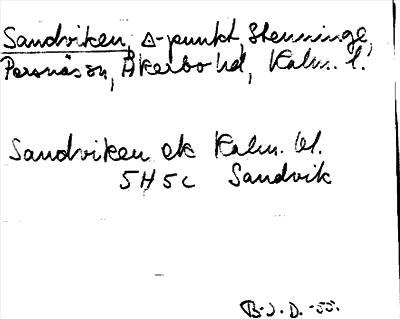 Sandviken, △-punkt, Stenninge,
Persnäs sn, Åkerbo hd, Kalm. l.
Sandviken ek Kalm. bl.
5H 5c Sandvik
B.J.D. -55.